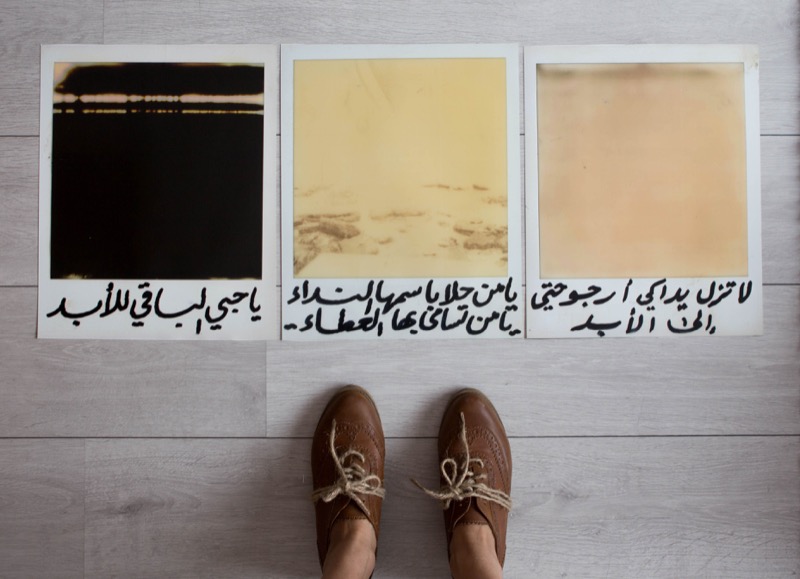 لا تزل يداكي أرجوحتي
إلى الأبد
يا من حلا باسمها النداء
يا من تسامى بها العطاء
يا حبي الباقي للأبد